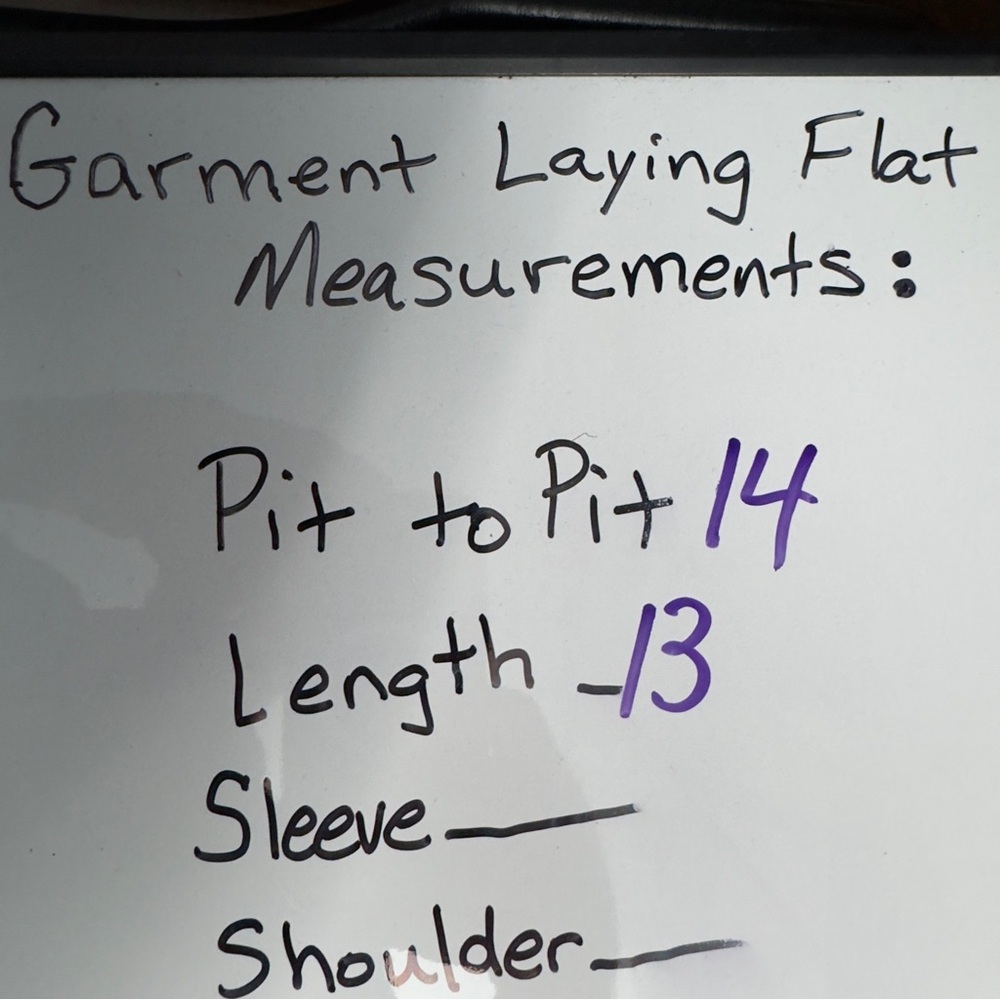 Garment Laying Flat
Measurements:
Pit to Pit 14
Length - 13
Sleeve —
Shoulder —